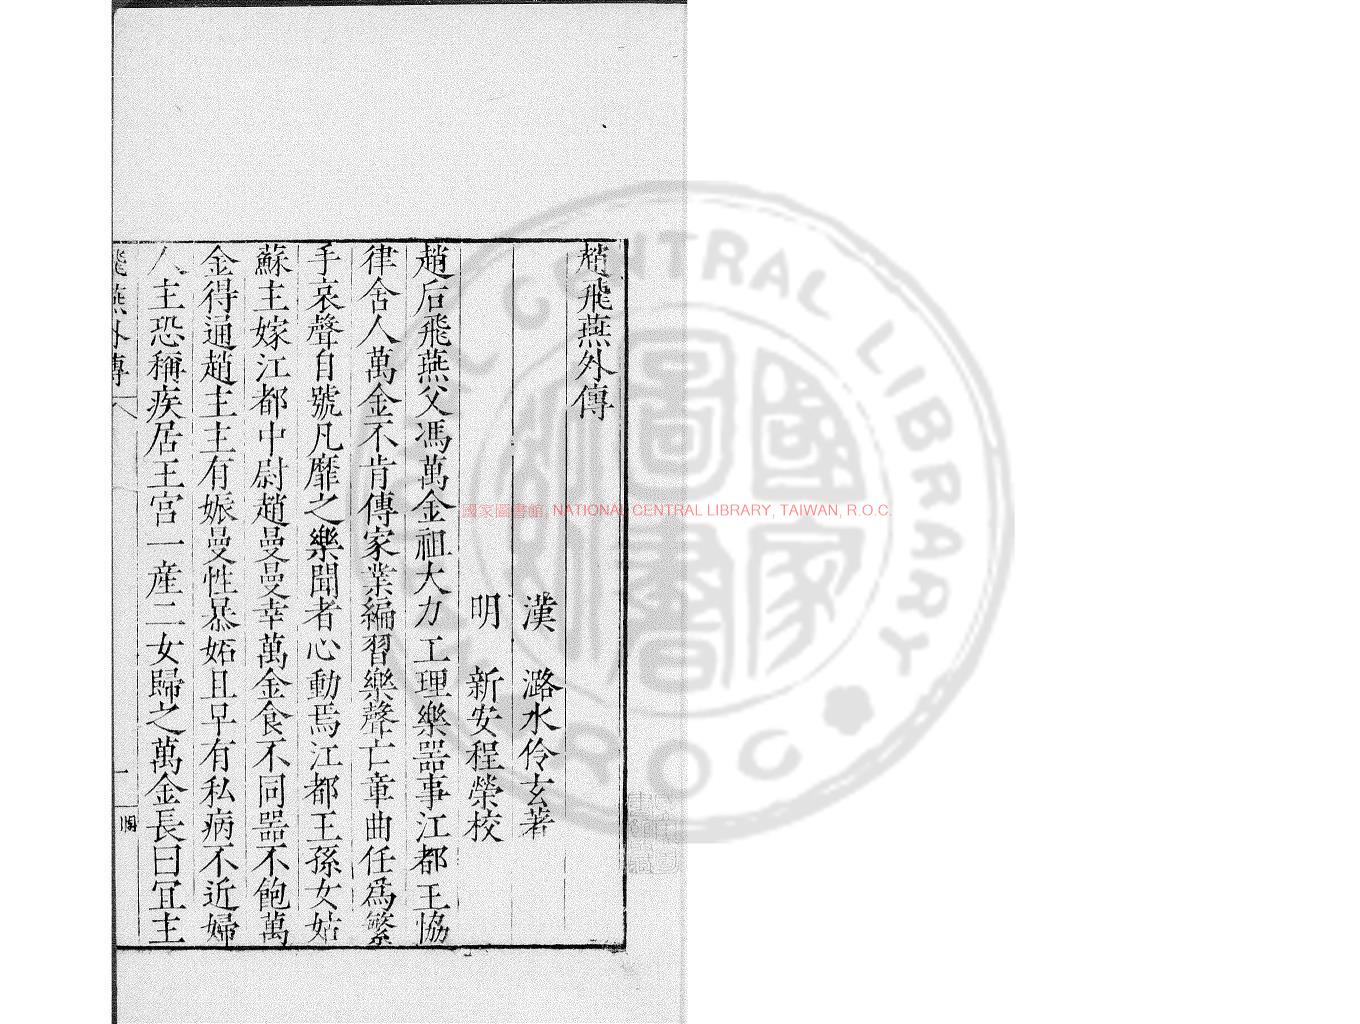 趙飛燕外傳
漢 潞水伶玄著
明 新安程榮校
趙后飛燕父馮萬金祖大力工理樂器事江都王協
律舍人萬金不肯傳家業編習樂聲亡章曲任爲繁
手哀聲自號凡靡之樂聞者心動焉江都王孫女姑
蘇主嫁江都中尉趙曼曼幸萬金食不同器不飽萬
金得通趙主主有娠曼性暴妬且早有私病不近婦
人主恐稱疾居王宮一產二女歸之萬金長曰宜主
飛燕外傳
一
國家圖書館, NATIONAL CENTRAL LIBRARY, TAIWAN, R.O.C.